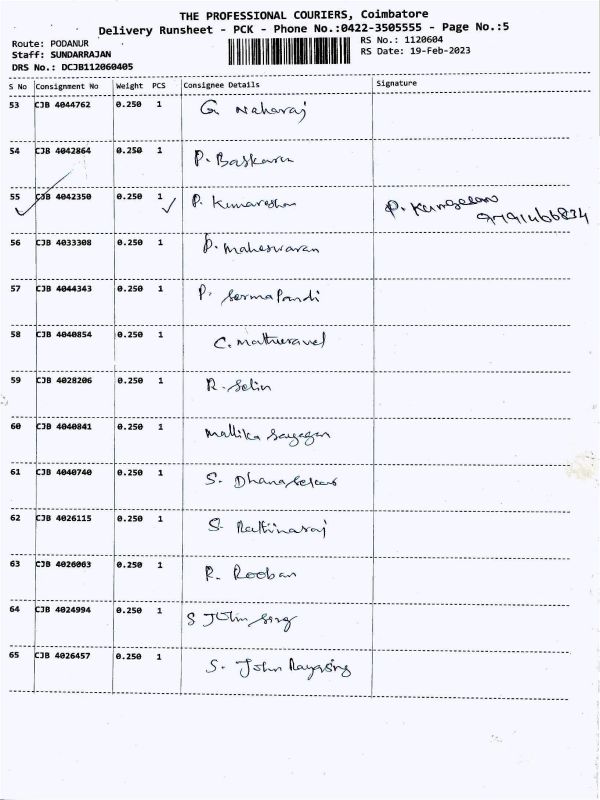 THE PROFESSIONAL COURIERS, Coimbatore
Delivery Runsheet - PCK - Phone No.:0422-3505555 - Page No.:5
Route: PODANUR
Staff: SUNDARRAJAN
DRS No.: DCJB112060405
RS No.: 1120604
RS Date: 19-Feb-2023
S No Consignment No Weight PCS Consignee Details Signature
53 CJB 4044762 0.250 1 G. Naharaj
54 CJB 4042864 0.250 1 P. Baskaran
55 CJB 4042350 0.250 1 P. Kumareshan P.
56 CJB 4033308 0.250 1 P. Maheswaran
57 CJB 4044343 0.250 1 P. SermaPandi
58 CJB 4040854 0.250 1 C. Mathuravel
59 CJB 4028206 0.250 1 R. Selin
60 CJB 4040841 0.250 1 Mallika
61 CJB 4040740 0.250 1 S. Dhanasekar
62 CJB 4026115 0.250 1 S. Rathinaraj
63 CJB 4026063 0.250 1 R. Rooban
64 CJB 4024994 0.250 1 S John
65 CJB 4026457 0.250 1 S. John